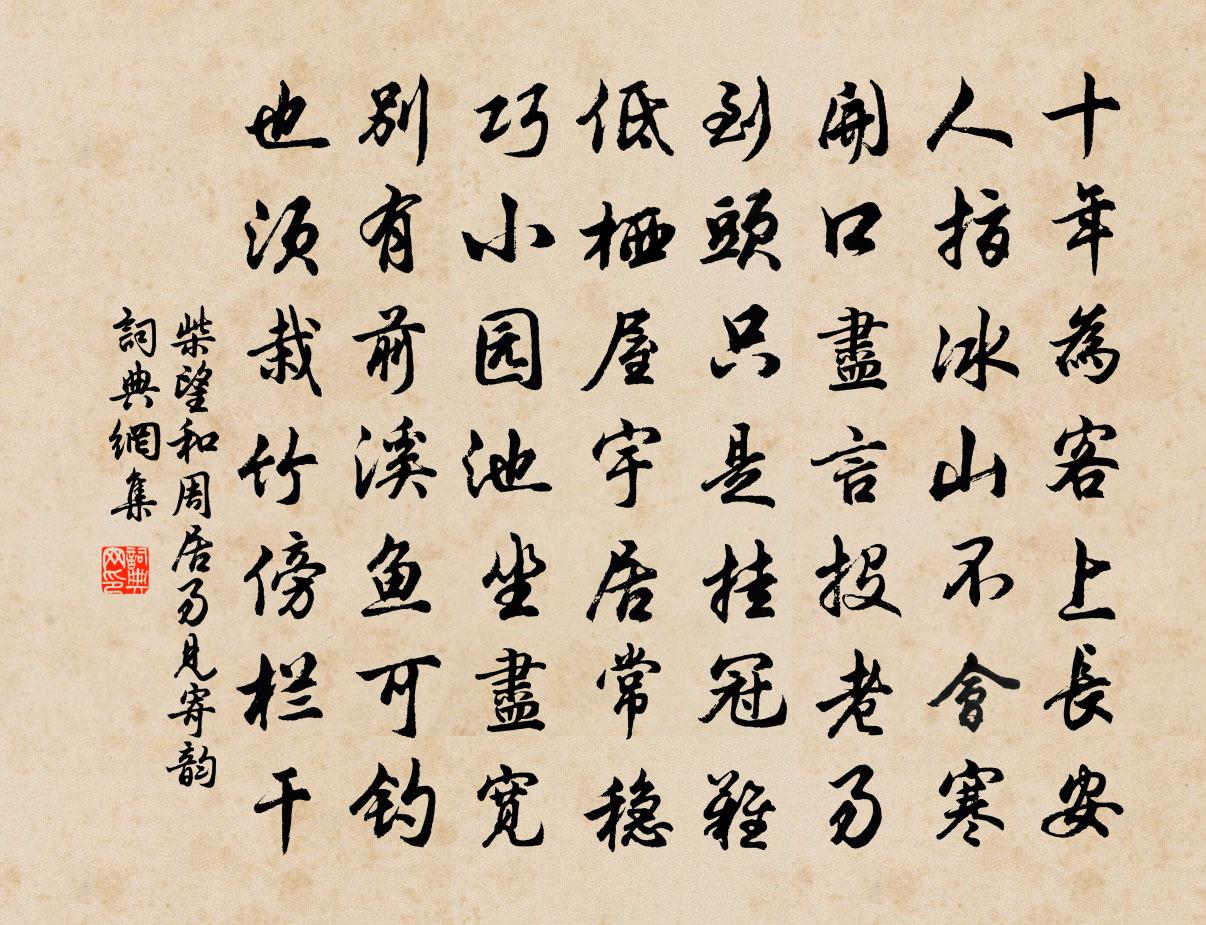 十年為客上長安
人指冰山不會寒
開口盡言投老易
到頭只是挂冠難
低栖屋宇居常稳
巧小园池坐盡寬
別有前溪鱼可釣
也須栽竹傍栏干
柴望和周居易見寄韵
詞典網集
詞典网印